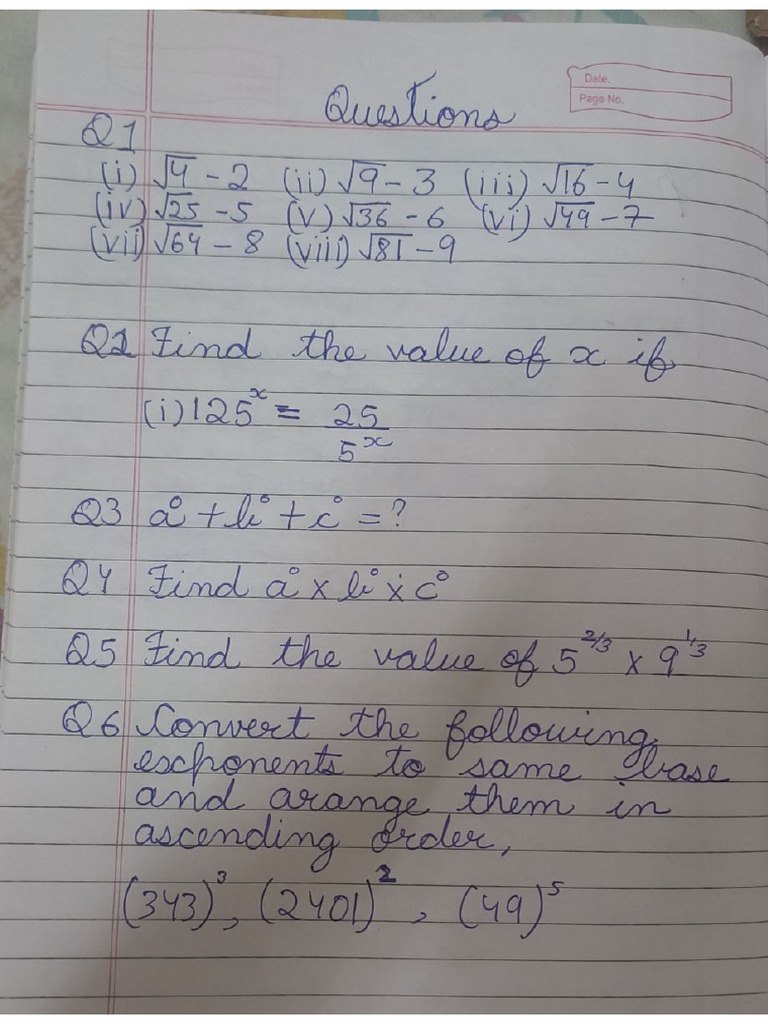 Date.
Page No.
Questions
Q1
(i) √4 - 2 (ii) √9 - 3 (iii) √16 - 4
(iv) √25 - 5 (v) √36 - 6 (vi) √49 - 7
(vii) √64 - 8 (viii) √81 - 9
Q2 Find the value of x if
(i) 125ˣ = 25/5ˣ
Q3 a⁰ + b⁰ + c⁰ = ?
Q4 Find a⁰ × b⁰ × c⁰
Q5 Find the value of 5^2/3 × 9^1/3
Q6 Convert the following
exponents to same base
and arange them in
ascending order,
(343)³, (2401)², (49)⁵